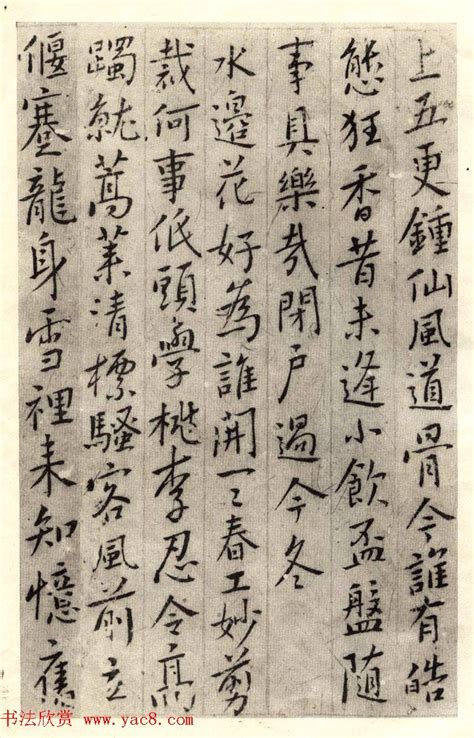 上五更鍾仙風道骨今誰有皓
態狂香昔未逢小飲盃盤隨
事具樂哉閉戶過今冬
水邊花好為誰開一〻春工妙剪
裁何事低頭學桃李忍令高
躅就蒿萊清標騷客風前立
偃蹇龍身雪裡来知憶舊
书法欣赏 www.yac8.com